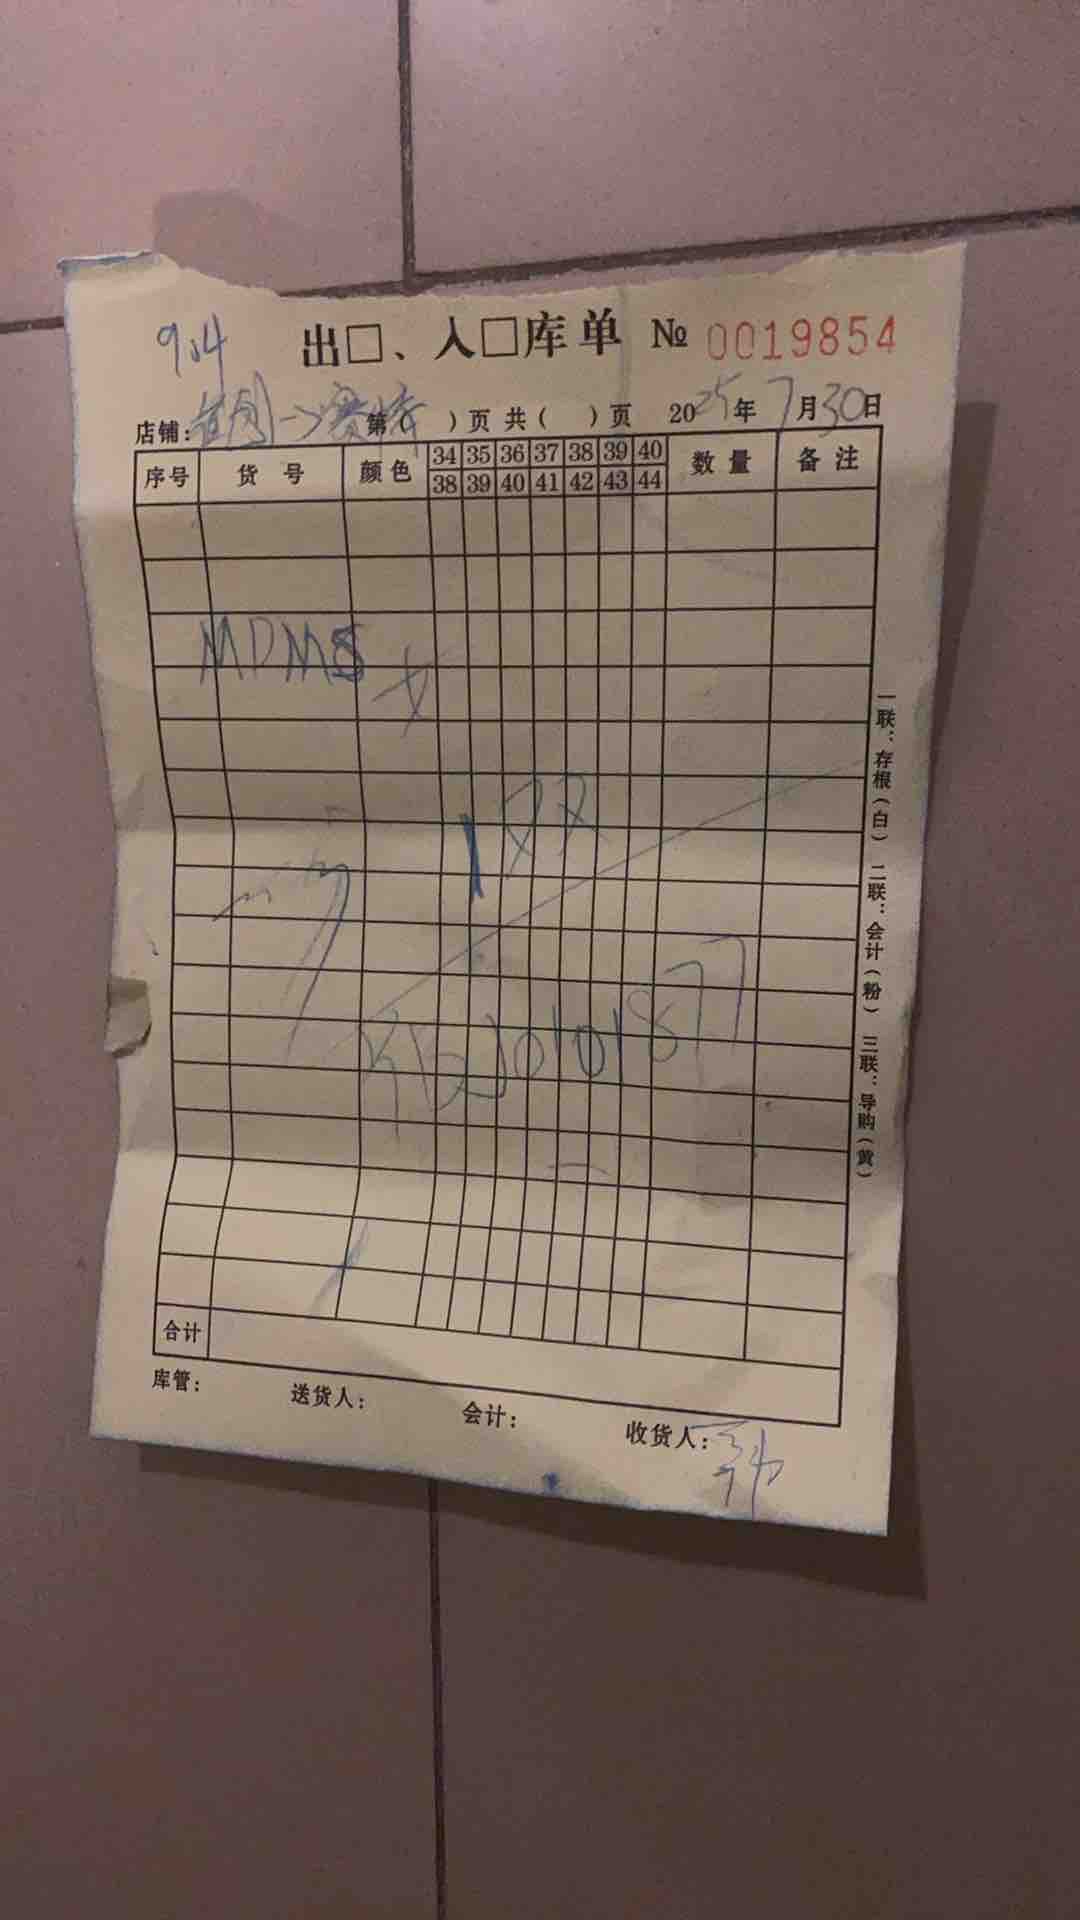 9.4 出□、入□库单 № 0019854
店铺: 第( )页 共( )页 2025年7月30日
序号 货号 颜色 34 35 36 37 38 39 40 数量 备注
38 39 40 41 42 43 44
MDMS
1双
0101877
合计
库管: 送货人: 会计: 收货人:
一联:存根(白) 二联:会计(粉) 三联:导购(黄)